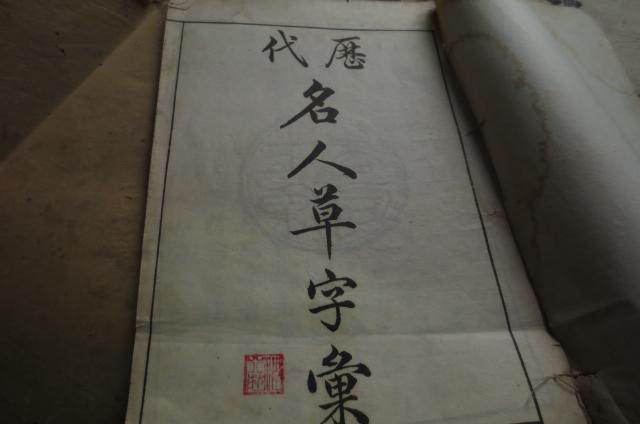 歷代
名人草字彙